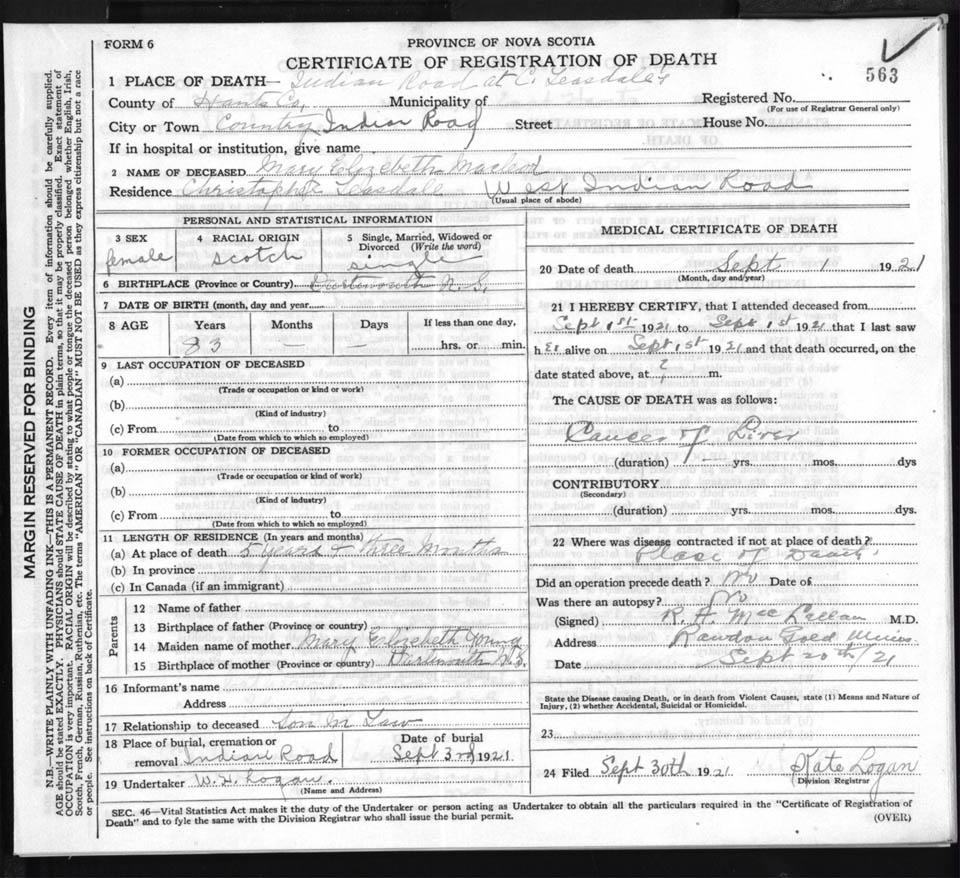 FORM 6
PROVINCE OF NOVA SCOTIA
CERTIFICATE OF REGISTRATION OF DEATH
563
1 PLACE OF DEATH— Indian Road at C. Teasdale's
County of Hants Co. Municipality of Registered No.
(For use of Registrar General only)
City or Town Country Indian Road Street House No.
If in hospital or institution, give name
2 NAME OF DECEASED Mary Elizebeth Macleod
Residence Christopher Teasdale West Indian Road
(Usual place of abode)
PERSONAL AND STATISTICAL INFORMATION
3 SEX 4 RACIAL ORIGIN 5 Single, Married, Widowed or Divorced (Write the word)
female scotch single
6 BIRTHPLACE (Province or Country) Dartmouth N.S.
7 DATE OF BIRTH (month, day and year)
8 AGE Years Months Days If less than one day,
83 — — hrs. or min.
9 LAST OCCUPATION OF DECEASED
(a)
(Trade or occupation or kind or work)
(b)
(Kind of industry)
(c) From to
(Date from which to which so employed)
10 FORMER OCCUPATION OF DECEASED
(a)
(Trade or occupation or kind of work)
(b)
(Kind of industry)
(c) From to
(Date from which to which so employed)
11 LENGTH OF RESIDENCE (In years and months)
(a) At place of death 5 years + three Months
(b) In province
(c) In Canada (if an immigrant)
Parents
12 Name of father
13 Birthplace of father (Province or country)
14 Maiden name of mother Mary Elizebeth Young
15 Birthplace of mother (Province or country) Dartmouth N.S.
16 Informant's name
Address
17 Relationship to deceased Son In Law
18 Place of burial, cremation or removal Indian Road Date of burial Sept 3rd 1921
19 Undertaker W. H. Logan.
(Name and Address)
MEDICAL CERTIFICATE OF DEATH
20 Date of death Sept 1 1921
(Month, day and year)
21 I HEREBY CERTIFY, that I attended deceased from
Sept 1st 1921 to Sept 1st 1921 that I last saw
her alive on Sept 1st 1921 and that death occurred, on the
date stated above, at ? m.
The CAUSE OF DEATH was as follows:
Cancer of Liver
(duration) yrs. mos. dys
CONTRIBUTORY
(Secondary)
(duration) yrs. mos. dys.
22 Where was disease contracted if not at place of death?
Place of Death
Did an operation precede death? No Date of
Was there an autopsy? No
(Signed) R. H. MacLellan M.D.
Address Rawdon Gold Mines
Date Sept 20th/21
State the Disease causing Death, or in death from Violent Causes, state (1) Means and Nature of
Injury, (2) whether Accidental, Suicidal or Homicidal.
23
24 Filed Sept 30th 1921 Kate Logan
Division Registrar
SEC. 46—Vital Statistics Act makes it the duty of the Undertaker or person acting as Undertaker to obtain all the particulars required in the "Certificate of Registration of
Death" and to fyle the same with the Division Registrar who shall issue the burial permit.
(OVER)
MARGIN RESERVED FOR BINDING
N.B.—WRITE PLAINLY WITH UNFADING INK—THIS IS A PERMANENT RECORD. Every item of information should be carefully supplied.
AGE should be stated EXACTLY. PHYSICIANS should STATE CAUSE OF DEATH in plain terms, so that it may be properly classified. Exact statement of
OCCUPATION is very important. RACIAL ORIGIN will be described by stating to what people or tongue the deceased person belonged whether English, Irish,
Scotch, French, German, Russian, Ruthenian, etc. The terms "AMERICAN" OR "CANADIAN" MUST NOT BE USED as they express citizenship but not a race
or people. See instructions on back of Certificate.